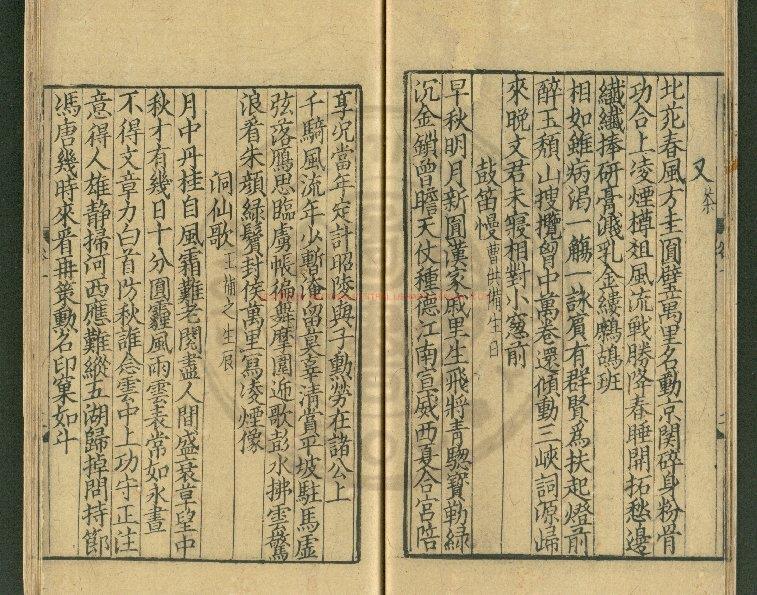 又茶
北苑春風方圭圓璧萬里名動京關碎身粉骨
功合上凌煙樽俎風流戰勝降春睡開拓愁邊
纖纖捧研膏濺乳金縷鷓鴣班
相如雖病渴一觴一詠賓有群賢爲扶起燈前
醉玉頹山搜攪胷中萬卷還傾動三峽詞源歸
來晚文君未寢相對小窓前
鼓笛慢曹伯備生日
早秋明月新圓漢家戚里生飛將青驄寶勒綠
沉金鎖曾瞻天仗種德江南宣威西夏合宮陪
享况當年定計昭陵與子勳勞在諸公上
千騎風流年少暫淹留莫辜清賞平坡駐馬虛
弦落鴈思臨虜帳徧舞摩圍遞歌彭水拂雲驚
浪看朱顏綠鬢封侯萬里寫凌煙像
洞仙歌王補之生辰
月中丹桂自風霜難老閱盡人間盛衰草望中
秋才有幾日十分圓霾風雨雲表常如永晝
不得文章力白首防秋誰念雲中上功守正注
意得人雄静掃河西應難縱五湖歸棹問持節
馮唐幾時來看再策勳名印窠如斗